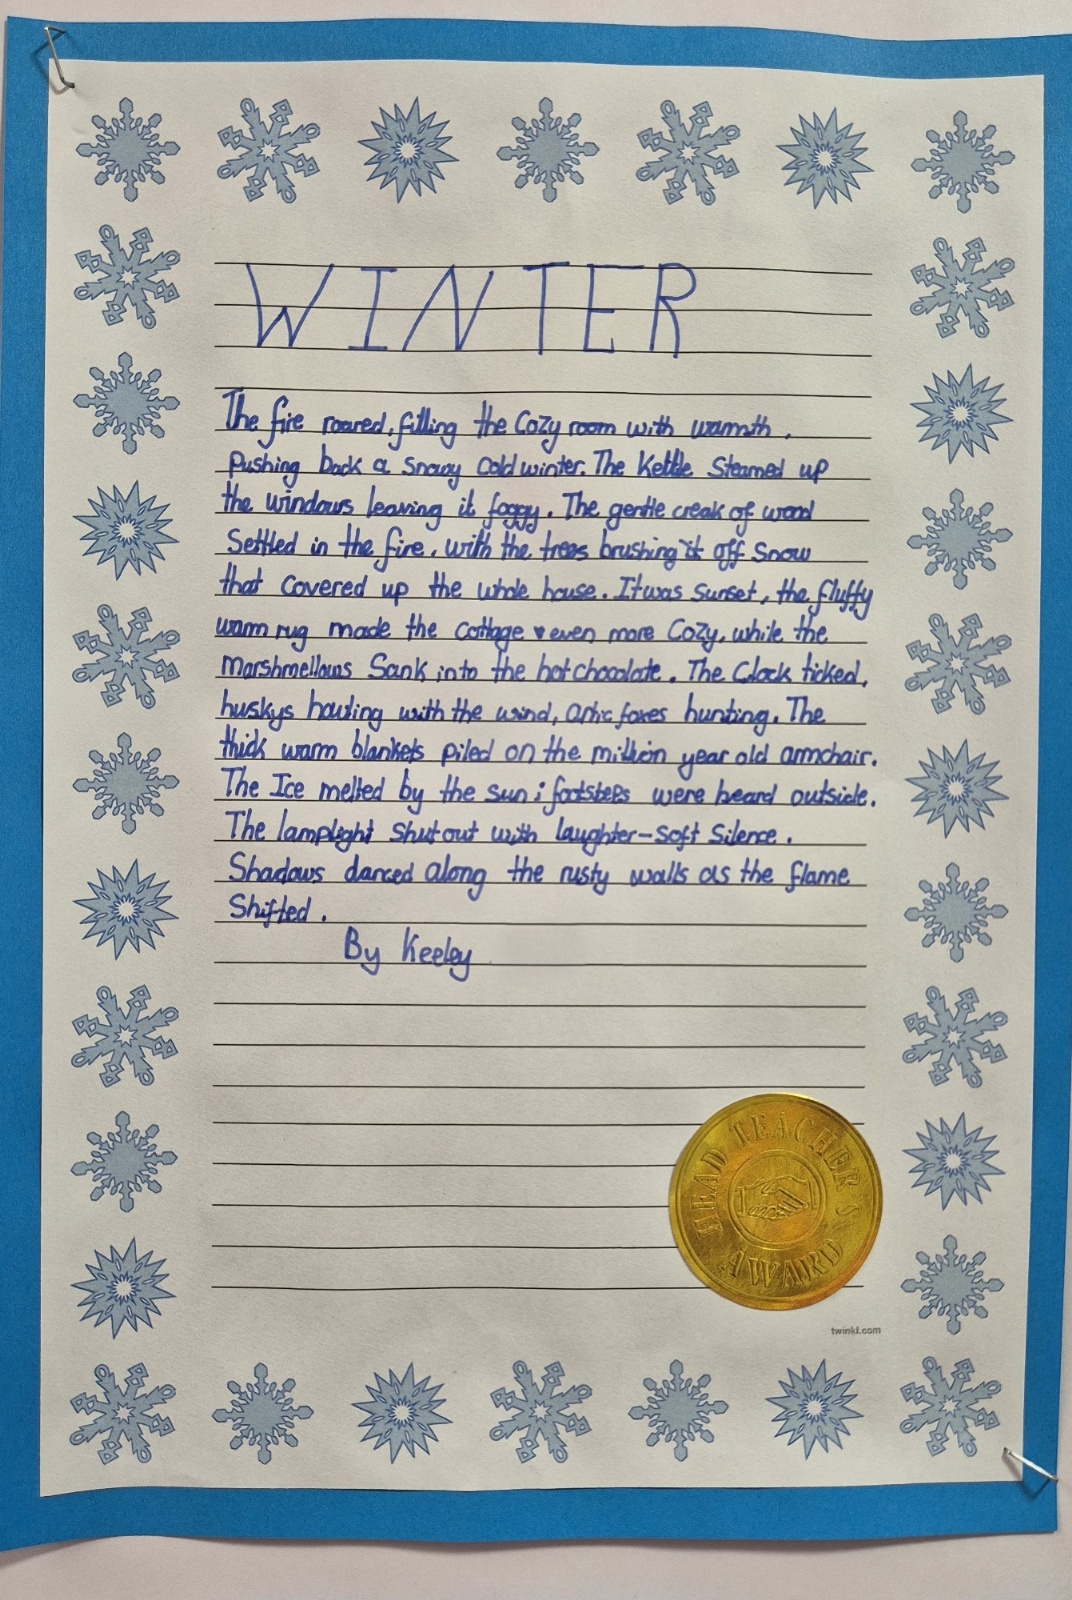 WINTER
The fire roared, filling the Cozy room with warmth,
Pushing back a snowy cold winter. The Kettle Steamed up
the windows leaving it foggy. The gentle creak of wood
Settled in the fire, with the trees brushing it off Snow
that covered up the whole house. It was sunset, the fluffy
warm rug made the cottage even more Cozy, while the
Marshmellows Sank into the hot chocolate. The Clock ticked,
huskys howling with the wind, Artic foxes hunting. The
thick warm blankets piled on the million year old armchair.
The Ice melted by the sun; footsteps were heard outside.
The lamplight Shut out with laughter-Soft Silence.
Shadows danced along the rusty walls as the flame
Shifted.
By Keeley
HEAD TEACHER'S
AWARD
twinkl.com